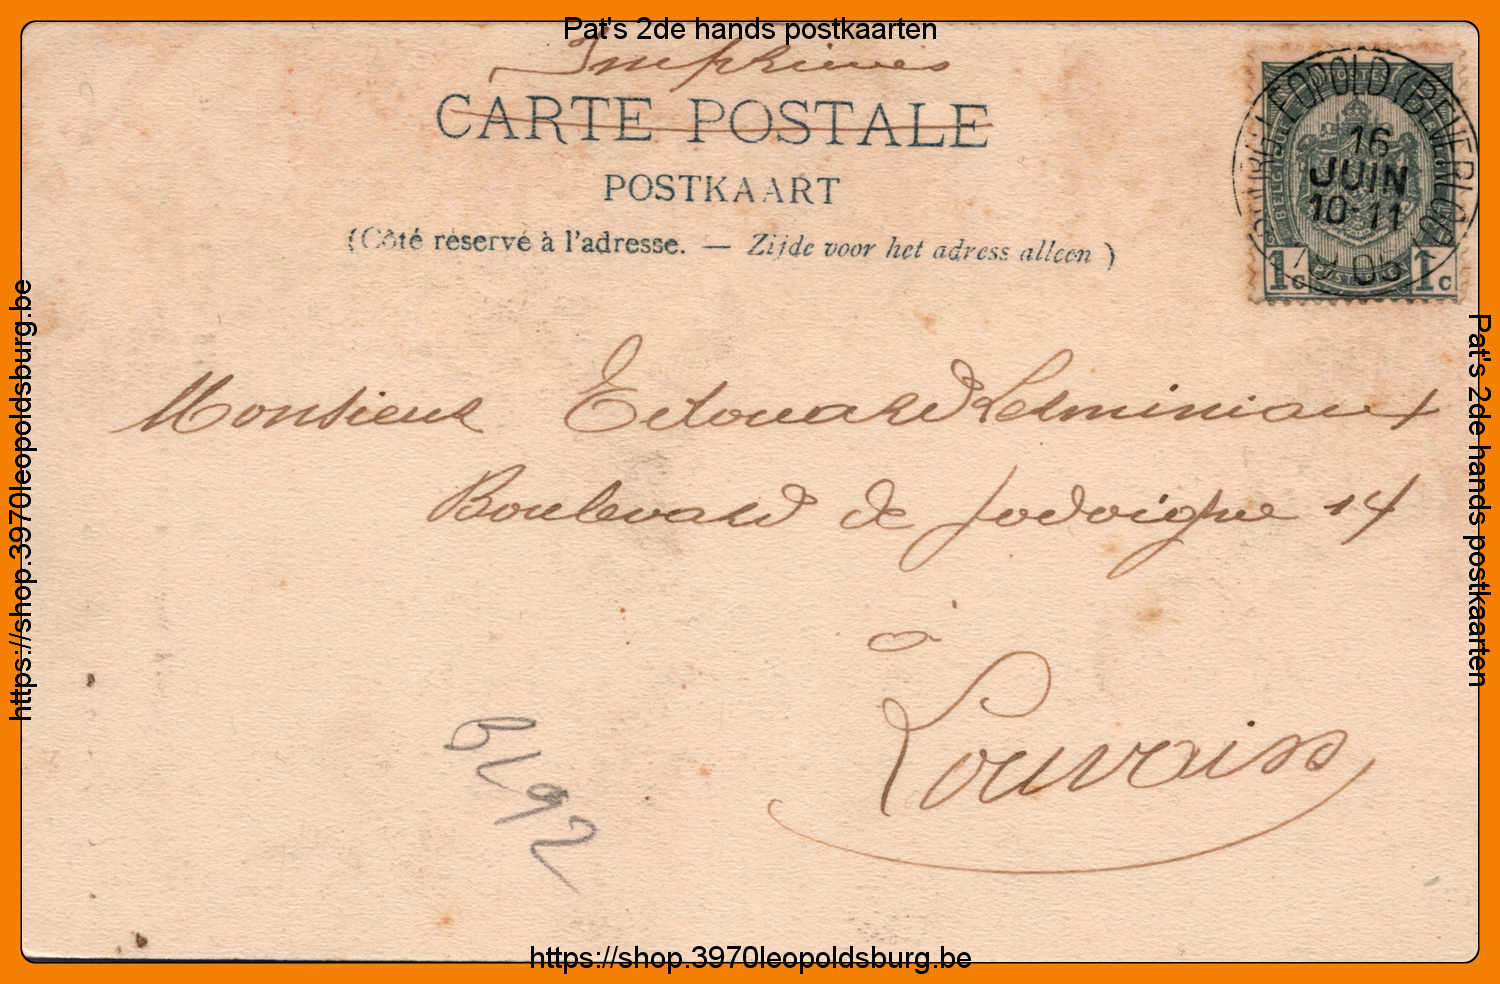 Pat's 2de hands postkaarten
Imprimés
CARTE POSTALE
POSTKAART
(Côté réservé à l'adresse. — Zijde voor het adress alleen)
LEOPOLD (BEVERLOO)
16
JUIN
10-11
1c 1c
Monsieur Edouard
Boulevard de Jodoigne 14
à
Louvain
B192
https://shop.3970leopoldsburg.be
Pat's 2de hands postkaarten
https://shop.3970leopoldsburg.be